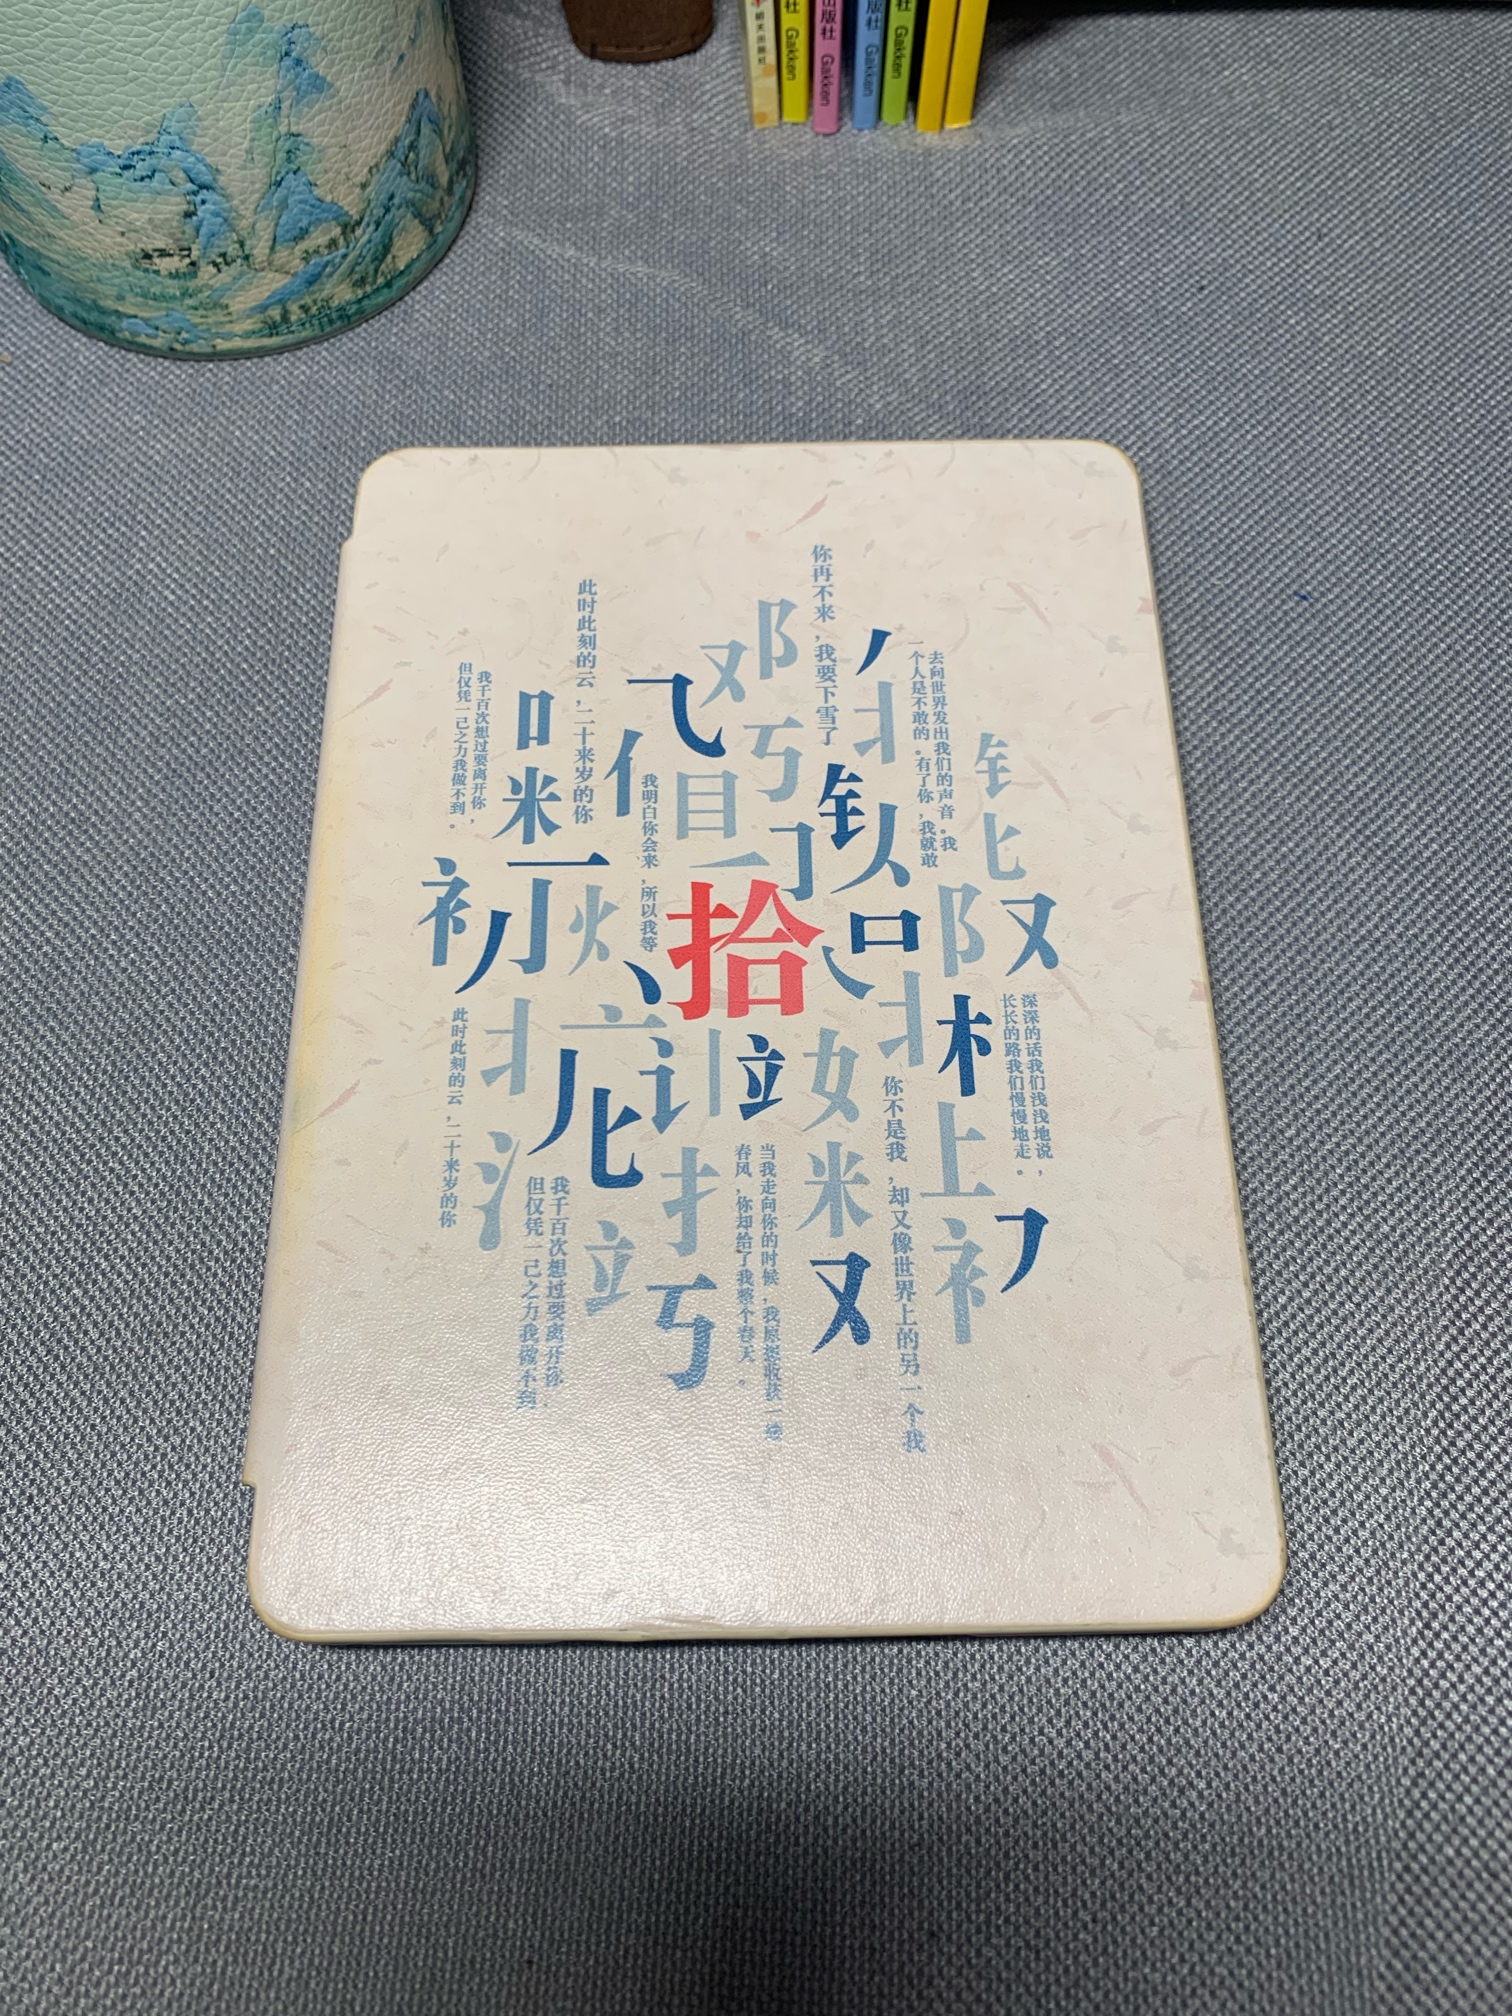 明天出版社
社 Gakken
出版社 Gakken
版社 Gakken
社 Gakken
你再不来，我要下雪了
此时此刻的云，二十来岁的你
去向世界发出我们的声音。我
一个人是不敢的。有了你，我就敢
我千百次想过要离开你，
但仅凭一己之力我做不到。
我明白你会来，所以我等
拾
深深的话我们浅浅地说，
长长的路我们慢慢地走。
此时此刻的云，二十来岁的你
你不是我，却又像世界上的另一个我
当我走向你的时候，我原想收获一缕
春风，你却给了我整个春天。
我千百次想过要离开你，
但仅凭一己之力我做不到